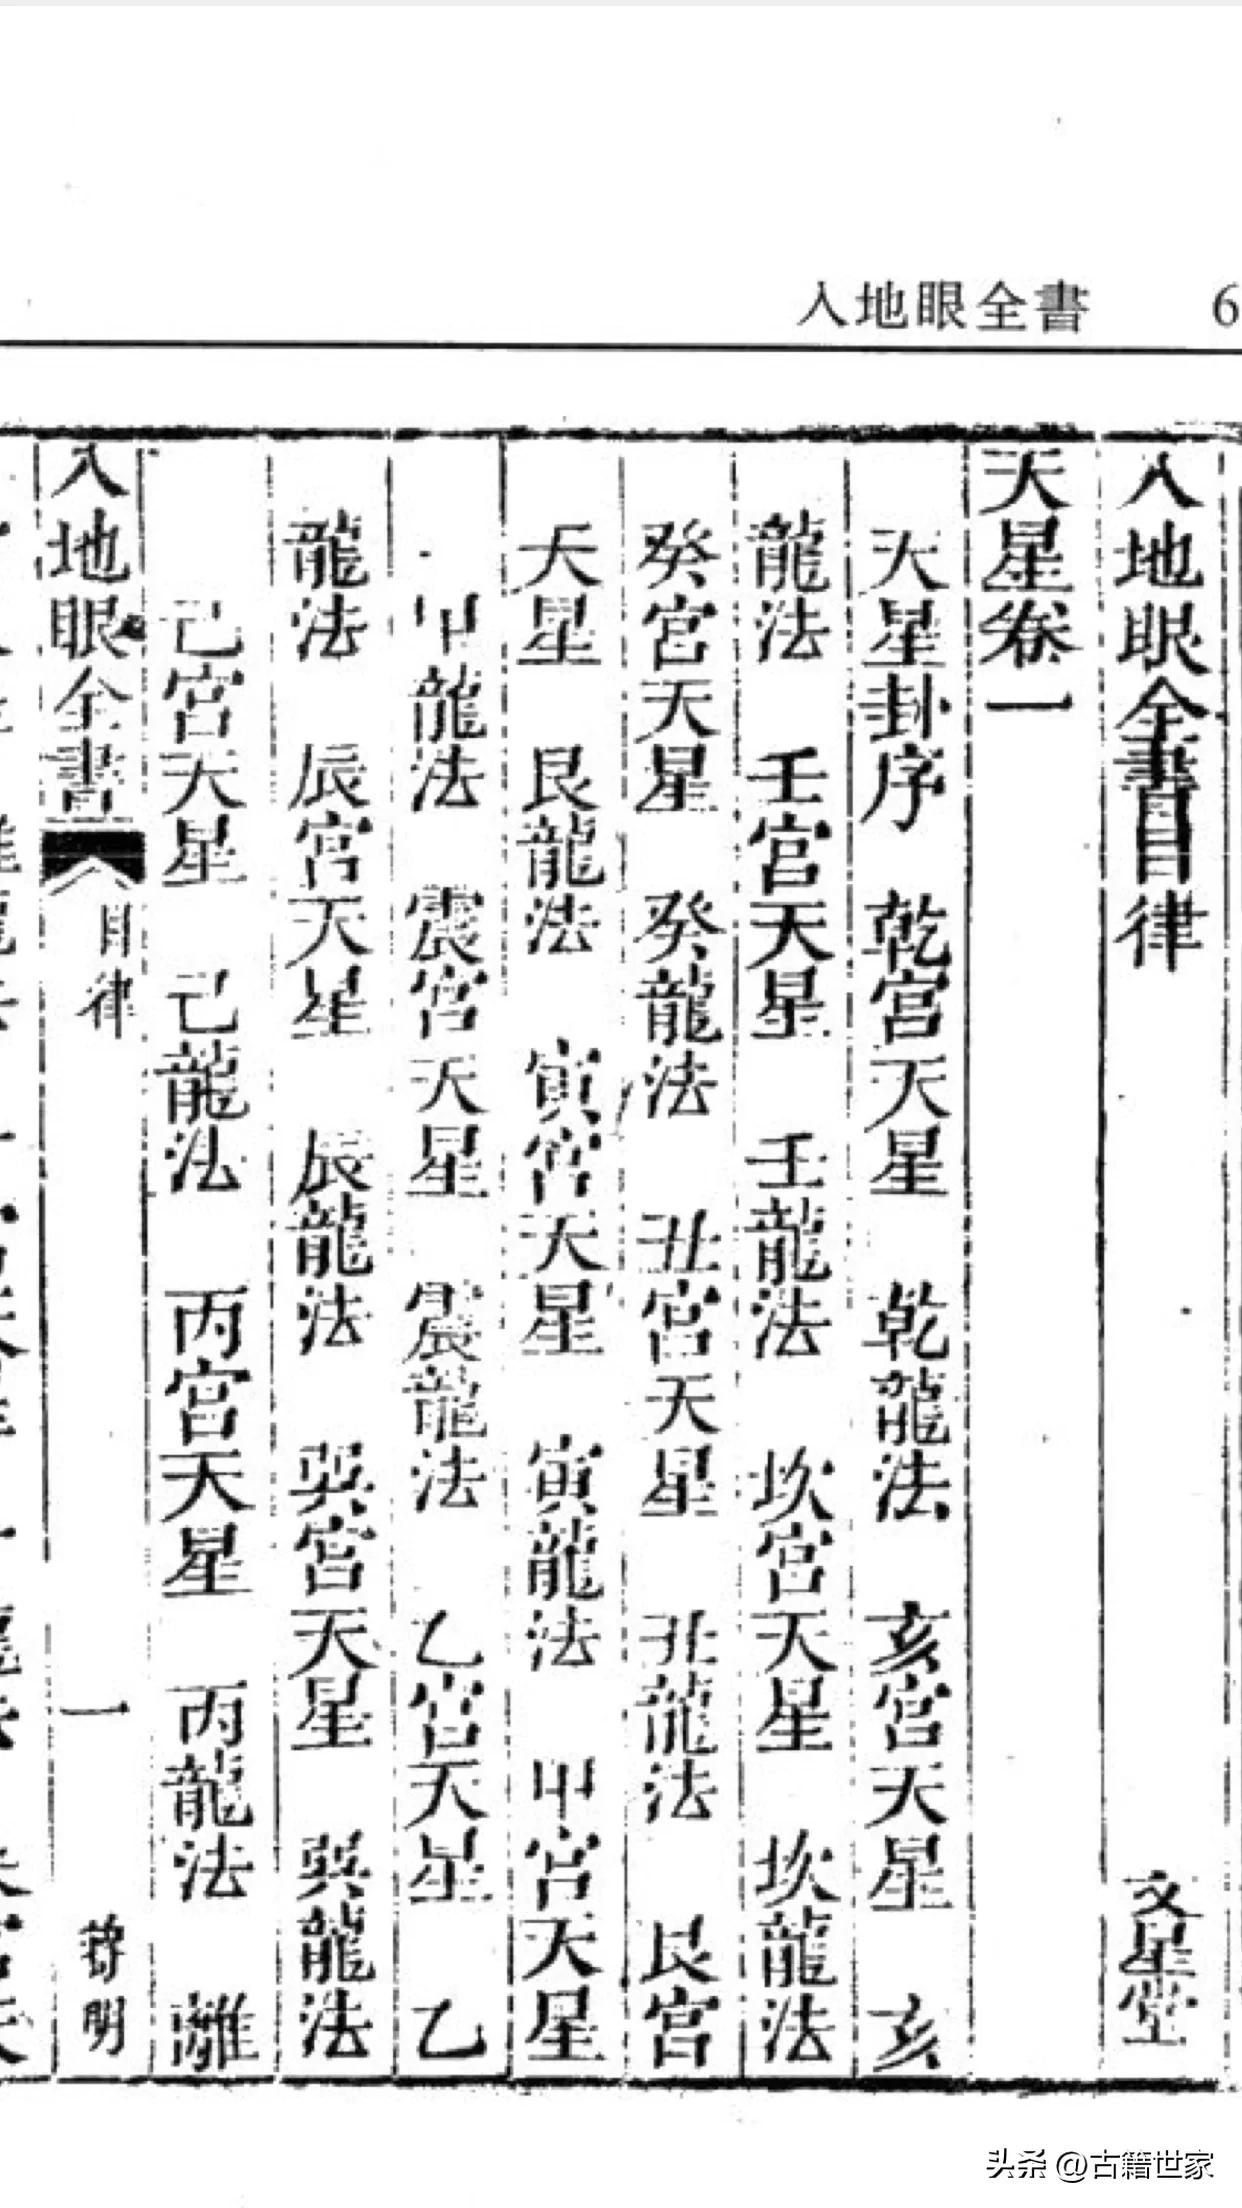 入地眼全書 6
入地眼全書目律 文星堂
天星卷一
天星卦序 乾宮天星 乾龍法 亥宮天星 亥
龍法 壬宮天星 壬龍法 坎宮天星 坎龍法
癸宮天星 癸龍法 丑宮天星 丑龍法 艮宮
天星 艮龍法 寅宮天星 寅龍法 甲宮天星
甲龍法 震宮天星 震龍法 乙宮天星 乙
龍法 辰宮天星 辰龍法 巽宮天星 巽龍法
己宮天星 己龍法 丙宮天星 丙龍法 離
入地眼全書 目律 一 明
头杀 @古籍世家